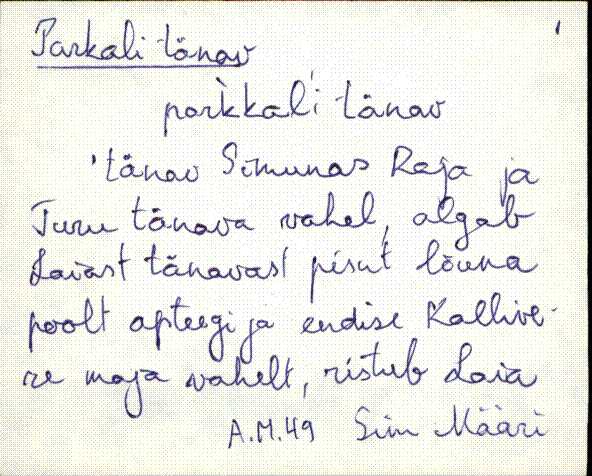 Parkali tänav
parkkali tänav
'tänav Simunas Raja ja
Turu tänava vahel, algab
Laiast tänavast pisut lõuna
poolt apteegi ja endise Kallive-
re maja vahelt, ristub Laia
A.M.49 Siim Määri